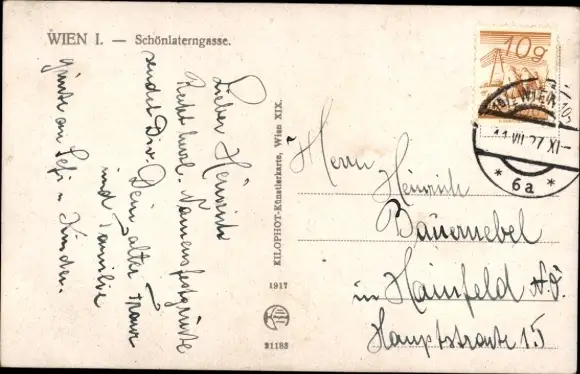 WIEN I. — Schönlaterngasse.
Lieber Heinrich
Recht herzl. Namensfestgrüße
sendet Dir Dein alter Franz
und Familie
Grüße an Sefi u. Kinder.
KILOPHOT-Künstlerkarte, Wien XIX.
1917
21183
10g
WIEN
11 VII 27 XI-
* 6a *
Herrn
Heinrich
Bauernebel
in Hainfeld N.Ö.
Hauptstraße 15